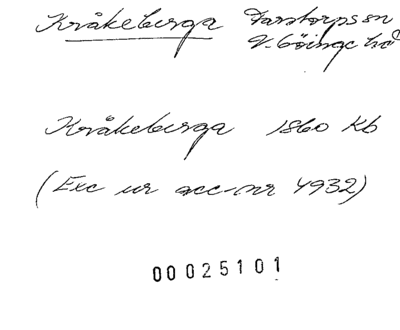 Kråkeberga Farstorps sn
V. Göinge hd
Kråkeberga 1860 Kb
(Exc ur acc-nr 4932)
00025101